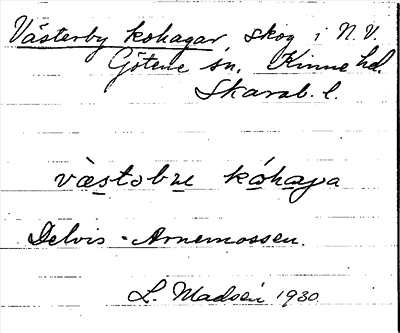 Västerby kohagar, skog i N.V.
Götene sn. Kinne hd.
Skarab. l.
væ̀stəbrɛ kóhaga
Delvis - Arnemossen.
L. Madsén 1930